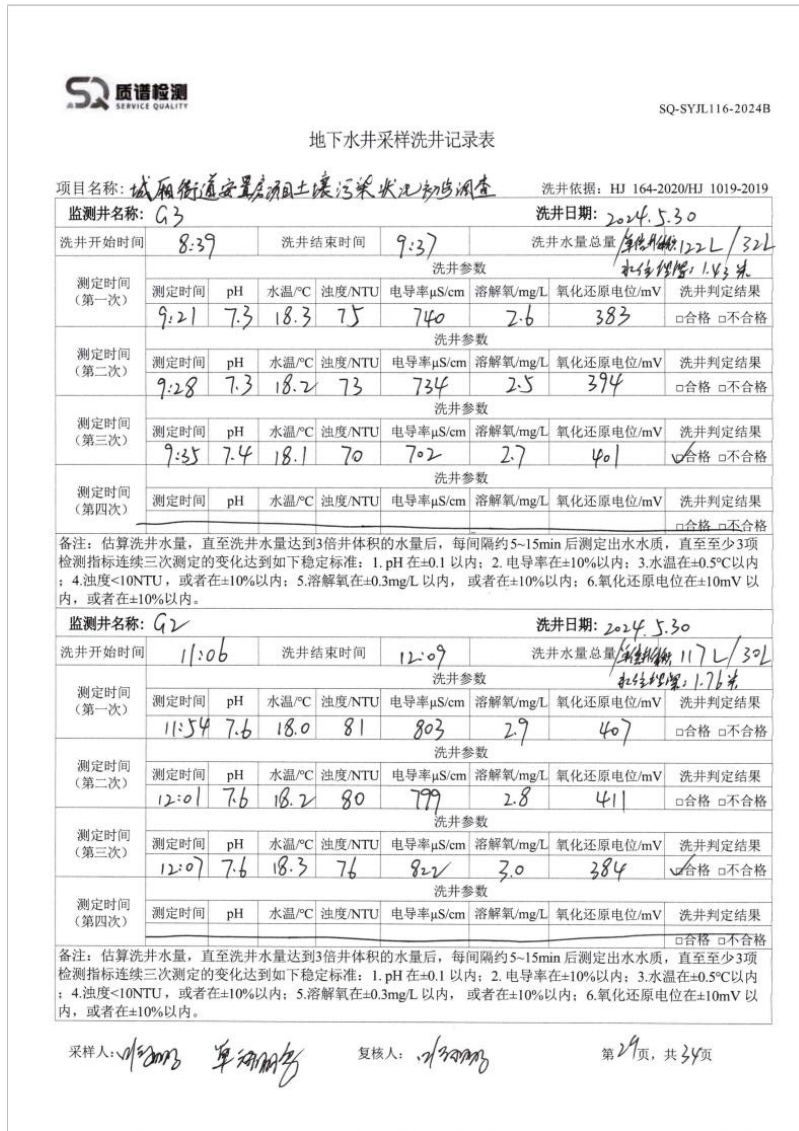 SQ 质谱检测
SERVICE QUALITY
SQ-SYJL116-2024B
地下水井采样洗井记录表
项目名称：城厢街道安置房项目土壤污染状况初步调查 洗井依据：HJ 164-2020/HJ 1019-2019
监测井名称：G3 洗井日期：2024.5.30
洗井开始时间 8:39 洗井结束时间 9:37 洗井水量总量/ 122L/32L
水位埋深：1.43米
测定时间（第一次） 洗井参数
测定时间 pH 水温/℃ 浊度/NTU 电导率μS/cm 溶解氧/mg/L 氧化还原电位/mV 洗井判定结果
9:21 7.3 18.3 75 740 2.6 383 □合格 □不合格
测定时间（第二次） 洗井参数
测定时间 pH 水温/℃ 浊度/NTU 电导率μS/cm 溶解氧/mg/L 氧化还原电位/mV 洗井判定结果
9:28 7.3 18.2 73 734 2.5 394 □合格 □不合格
测定时间（第三次） 洗井参数
测定时间 pH 水温/℃ 浊度/NTU 电导率μS/cm 溶解氧/mg/L 氧化还原电位/mV 洗井判定结果
9:35 7.4 18.1 70 702 2.7 401 ☑合格 □不合格
测定时间（第四次） 洗井参数
测定时间 pH 水温/℃ 浊度/NTU 电导率μS/cm 溶解氧/mg/L 氧化还原电位/mV 洗井判定结果
□合格 □不合格
备注：估算洗井水量，直至洗井水量达到3倍井体积的水量后，每间隔约5~15min 后测定出水水质，直至至少3项
检测指标连续三次测定的变化达到如下稳定标准：1. pH 在±0.1 以内；2. 电导率在±10%以内；3.水温在±0.5℃以内
；4.浊度<10NTU，或者在±10%以内；5.溶解氧在±0.3mg/L 以内， 或者在±10%以内；6.氧化还原电位在±10mV 以
内，或者在±10%以内。
监测井名称：G2 洗井日期：2024.5.30
洗井开始时间 11:06 洗井结束时间 12:09 洗井水量总量/ 117L/30L
水位埋深：1.76米
测定时间（第一次） 洗井参数
测定时间 pH 水温/℃ 浊度/NTU 电导率μS/cm 溶解氧/mg/L 氧化还原电位/mV 洗井判定结果
11:54 7.6 18.0 81 803 2.9 407 □合格 □不合格
测定时间（第二次） 洗井参数
测定时间 pH 水温/℃ 浊度/NTU 电导率μS/cm 溶解氧/mg/L 氧化还原电位/mV 洗井判定结果
12:01 7.6 18.2 80 799 2.8 411 □合格 □不合格
测定时间（第三次） 洗井参数
测定时间 pH 水温/℃ 浊度/NTU 电导率μS/cm 溶解氧/mg/L 氧化还原电位/mV 洗井判定结果
12:07 7.6 18.3 76 822 3.0 384 ☑合格 □不合格
测定时间（第四次） 洗井参数
测定时间 pH 水温/℃ 浊度/NTU 电导率μS/cm 溶解氧/mg/L 氧化还原电位/mV 洗井判定结果
□合格 □不合格
备注：估算洗井水量，直至洗井水量达到3倍井体积的水量后，每间隔约5~15min 后测定出水水质，直至至少3项
检测指标连续三次测定的变化达到如下稳定标准：1. pH 在±0.1 以内；2. 电导率在±10%以内；3.水温在±0.5℃以内
；4.浊度<10NTU，或者在±10%以内；5.溶解氧在±0.3mg/L 以内， 或者在±10%以内；6.氧化还原电位在±10mV 以
内，或者在±10%以内。
采样人： 复核人： 第29页，共34页